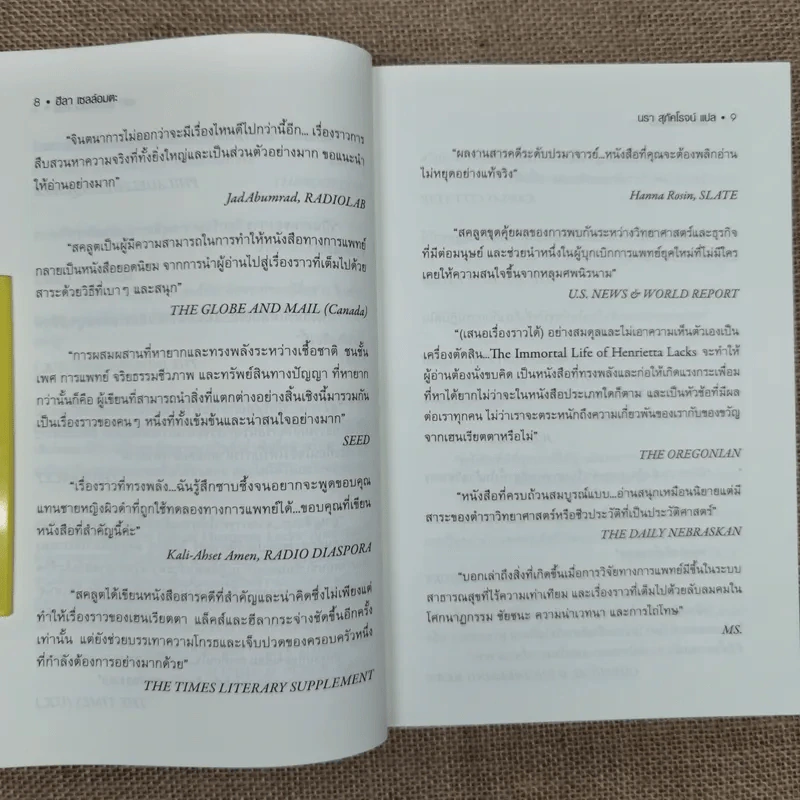 8 • ฮีลา เซลล์อมตะ
“จินตนาการไม่ออกว่าจะมีเรื่องไหนดีไปกว่านี้อีก... เรื่องราวการ
สืบสวนหาความจริงที่ทั้งยิ่งใหญ่และเป็นส่วนตัวอย่างมาก ขอแนะนำ
ให้อ่านอย่างมาก”
Jad Abumrad, RADIOLAB
“สคลูตเป็นผู้มีความสามารถในการทำให้หนังสือทางการแพทย์
กลายเป็นหนังสือยอดนิยม จากการนำผู้อ่านไปสู่เรื่องราวที่เต็มไปด้วย
สาระด้วยวิธีที่เบาๆ และสนุก”
THE GLOBE AND MAIL (Canada)
“การผสมผสานที่หายากและทรงพลังระหว่างเชื้อชาติ ชนชั้น
เพศ การแพทย์ จริยธรรมชีวภาพ และทรัพย์สินทางปัญญา ที่หายาก
กว่านั้นก็คือ ผู้เขียนที่สามารถนำสิ่งที่แตกต่างอย่างสิ้นเชิงนี้มารวมกัน
เป็นเรื่องราวของคนๆ หนึ่งที่ทั้งเข้มข้นและน่าสนใจอย่างมาก”
SEED
“เรื่องราวที่ทรงพลัง...ฉันรู้สึกซาบซึ้งจนอยากจะพูดขอบคุณ
แทนชายหญิงผิวดำที่ถูกใช้ทดลองทางการแพทย์ได้...ขอบคุณที่เขียน
หนังสือที่สำคัญนี้ค่ะ”
Kali-Ahset Amen, RADIO DIASPORA
“สคลูตได้เขียนหนังสือสารคดีที่สำคัญและน่าคิดซึ่งไม่เพียงแต่
ทำให้เรื่องราวของเฮนเรียตตา แล็คส์และฮีลากระจ่างชัดขึ้นอีกครั้ง
เท่านั้น แต่ยังช่วยบรรเทาความโกรธและเจ็บปวดของครอบครัวหนึ่ง
ที่กำลังต้องการอย่างมากด้วย”
THE TIMES LITERARY SUPPLEMENT
นรา สุภัคโรจน์ แปล • 9
“ผลงานสารคดีระดับปรมาจารย์...หนังสือที่คุณจะต้องพลิกอ่าน
ไม่หยุดอย่างแท้จริง”
Hanna Rosin, SLATE
“สคลูตขุดคุ้ยผลของการพบกันระหว่างวิทยาศาสตร์และธุรกิจ
ที่มีต่อมนุษย์ และช่วยนำหนึ่งในผู้บุกเบิกการแพทย์ยุคใหม่ที่ไม่มีใคร
เคยให้ความสนใจขึ้นจากหลุมศพนิรนาม”
U.S. NEWS & WORLD REPORT
“(เสนอเรื่องราวได้) อย่างสมดุลและไม่เอาความเห็นตัวเองเป็น
เครื่องตัดสิน...The Immortal Life of Henrietta Lacks จะทำให้
ผู้อ่านต้องนั่งขบคิด เป็นหนังสือที่ทรงพลังและก่อให้เกิดแรงกระเพื่อม
ที่หาได้ยากไม่ว่าจะในหนังสือประเภทใดก็ตาม และเป็นหัวข้อที่มีผล
ต่อเราทุกคน ไม่ว่าเราจะตระหนักถึงความเกี่ยวพันของเรากับของขวัญ
จากเฮนเรียตตาหรือไม่”
THE OREGONIAN
“หนังสือที่ครบถ้วนสมบูรณ์แบบ...อ่านสนุกเหมือนนิยายแต่มี
สาระของตำราวิทยาศาสตร์หรือชีวประวัติที่เป็นประวัติศาสตร์”
THE DAILY NEBRASKAN
“บอกเล่าถึงสิ่งที่เกิดขึ้นเมื่อการวิจัยทางการแพทย์มีขึ้นในระบบ
สาธารณสุขที่ไร้ความเท่าเทียม และเรื่องราวที่เต็มไปด้วยลับลมคมใน
โศกนาฏกรรม ชัยชนะ ความน่าเวทนา และการไถ่โทษ”
MS.